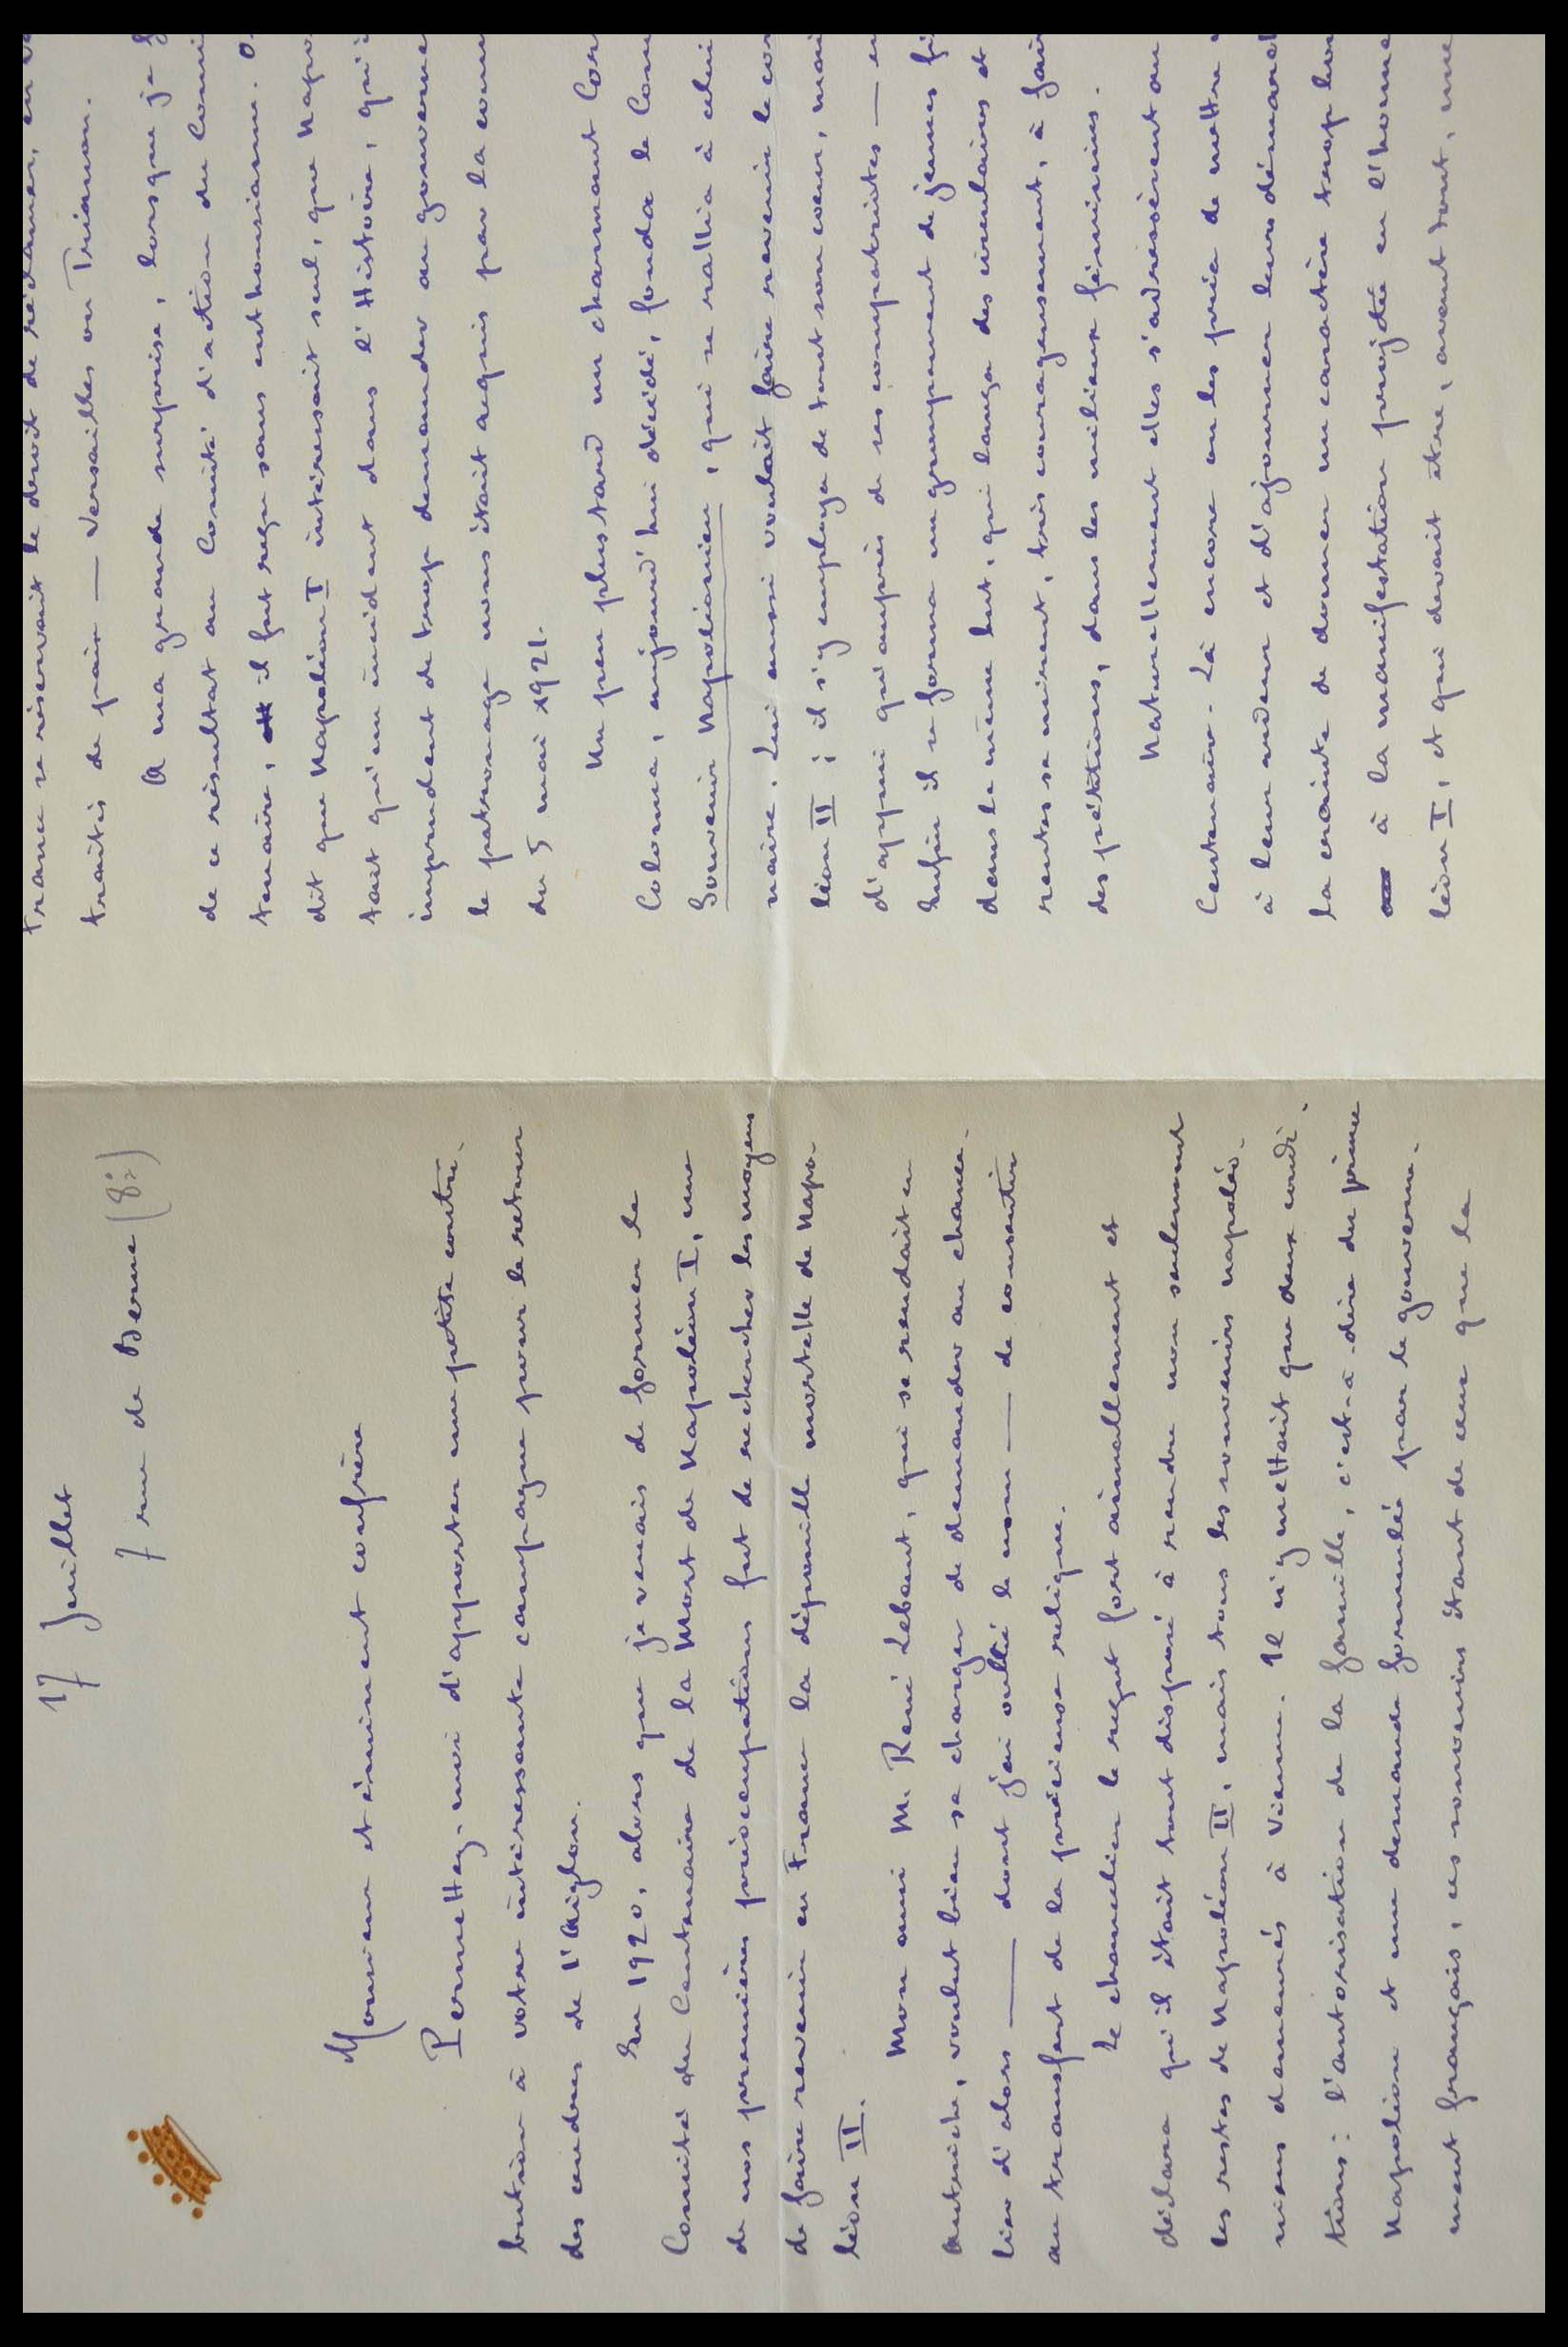 17 Juillet
7 rue de Berne (8e)
Monsieur et éminent confrère
Permettez-moi d'apporter une petite contri-
bution à votre intéressante campagne pour le retour
des cendres de l'Aiglon.
En 1920, alors que je venais de former le
Comité du Centenaire de la Mort de Napoléon I, une
de nos premières préoccupations fut de rechercher les moyens
de faire revenir en France la dépouille mortelle de Napo-
léon II.
Mon ami M. René Lebaut, qui se rendait en
Autriche, voulut bien se charger de demander au chance-
lier d'alors — dont j'ai oublié le nom — de consentir
au transfert de la précieuse relique.
Le chancelier le reçut fort aimablement et
déclara qu'il était tout disposé à rendre non seulement
les restes de Napoléon II, mais tous les souvenirs napoléo-
niens demeurés à Vienne. Il n'y mettait que deux condi-
tions : l'autorisation de la famille, c'est-à-dire du prince
Napoléon et une demande formulée par le gouverne-
ment français, ces souvenirs étant de ceux que la
France se réservait le droit de réclamer, en
traités de paix — Versailles ou Trianon.
A ma grande surprise, lorsque je f
de ce résultat au Comité d'action du Comi
tenaire, il fut reçu sans enthousiasme. O
dit que Napoléon I intéressait seul, que Napo
tait qu'un incident dans l'Histoire, qu'i
imprudent de trop demander au gouverne
le patronage nous était acquis par la com
du 5 mai 1921.
Un peu plus tard un charmant Cor
Colonna, aujourd'hui décédé, fonda le Com
Souvenir Napoléonien, qui se rallia à celui
naire. Lui aussi voulait faire revenir le cor
léon II ; il s'y employa de tout son coeur, mai
d'appui qu'auprès de ses compatriotes — en
Enfin il se forma un groupement de jeunes fi
dans le même but, qui lança des circulaires et
rentes se mirent, très courageusement, à fair
des pétitions, dans les milieux féminins.
Naturellement elles s'adressèrent au
Centenaire. Là encore on les pria de mettre
à leur ardeur et d'ajourner leurs démarch
la crainte de donner un caractère trop bon
à la manifestation projetée en l'honne
léon I, et qui devait être, avant tout, une